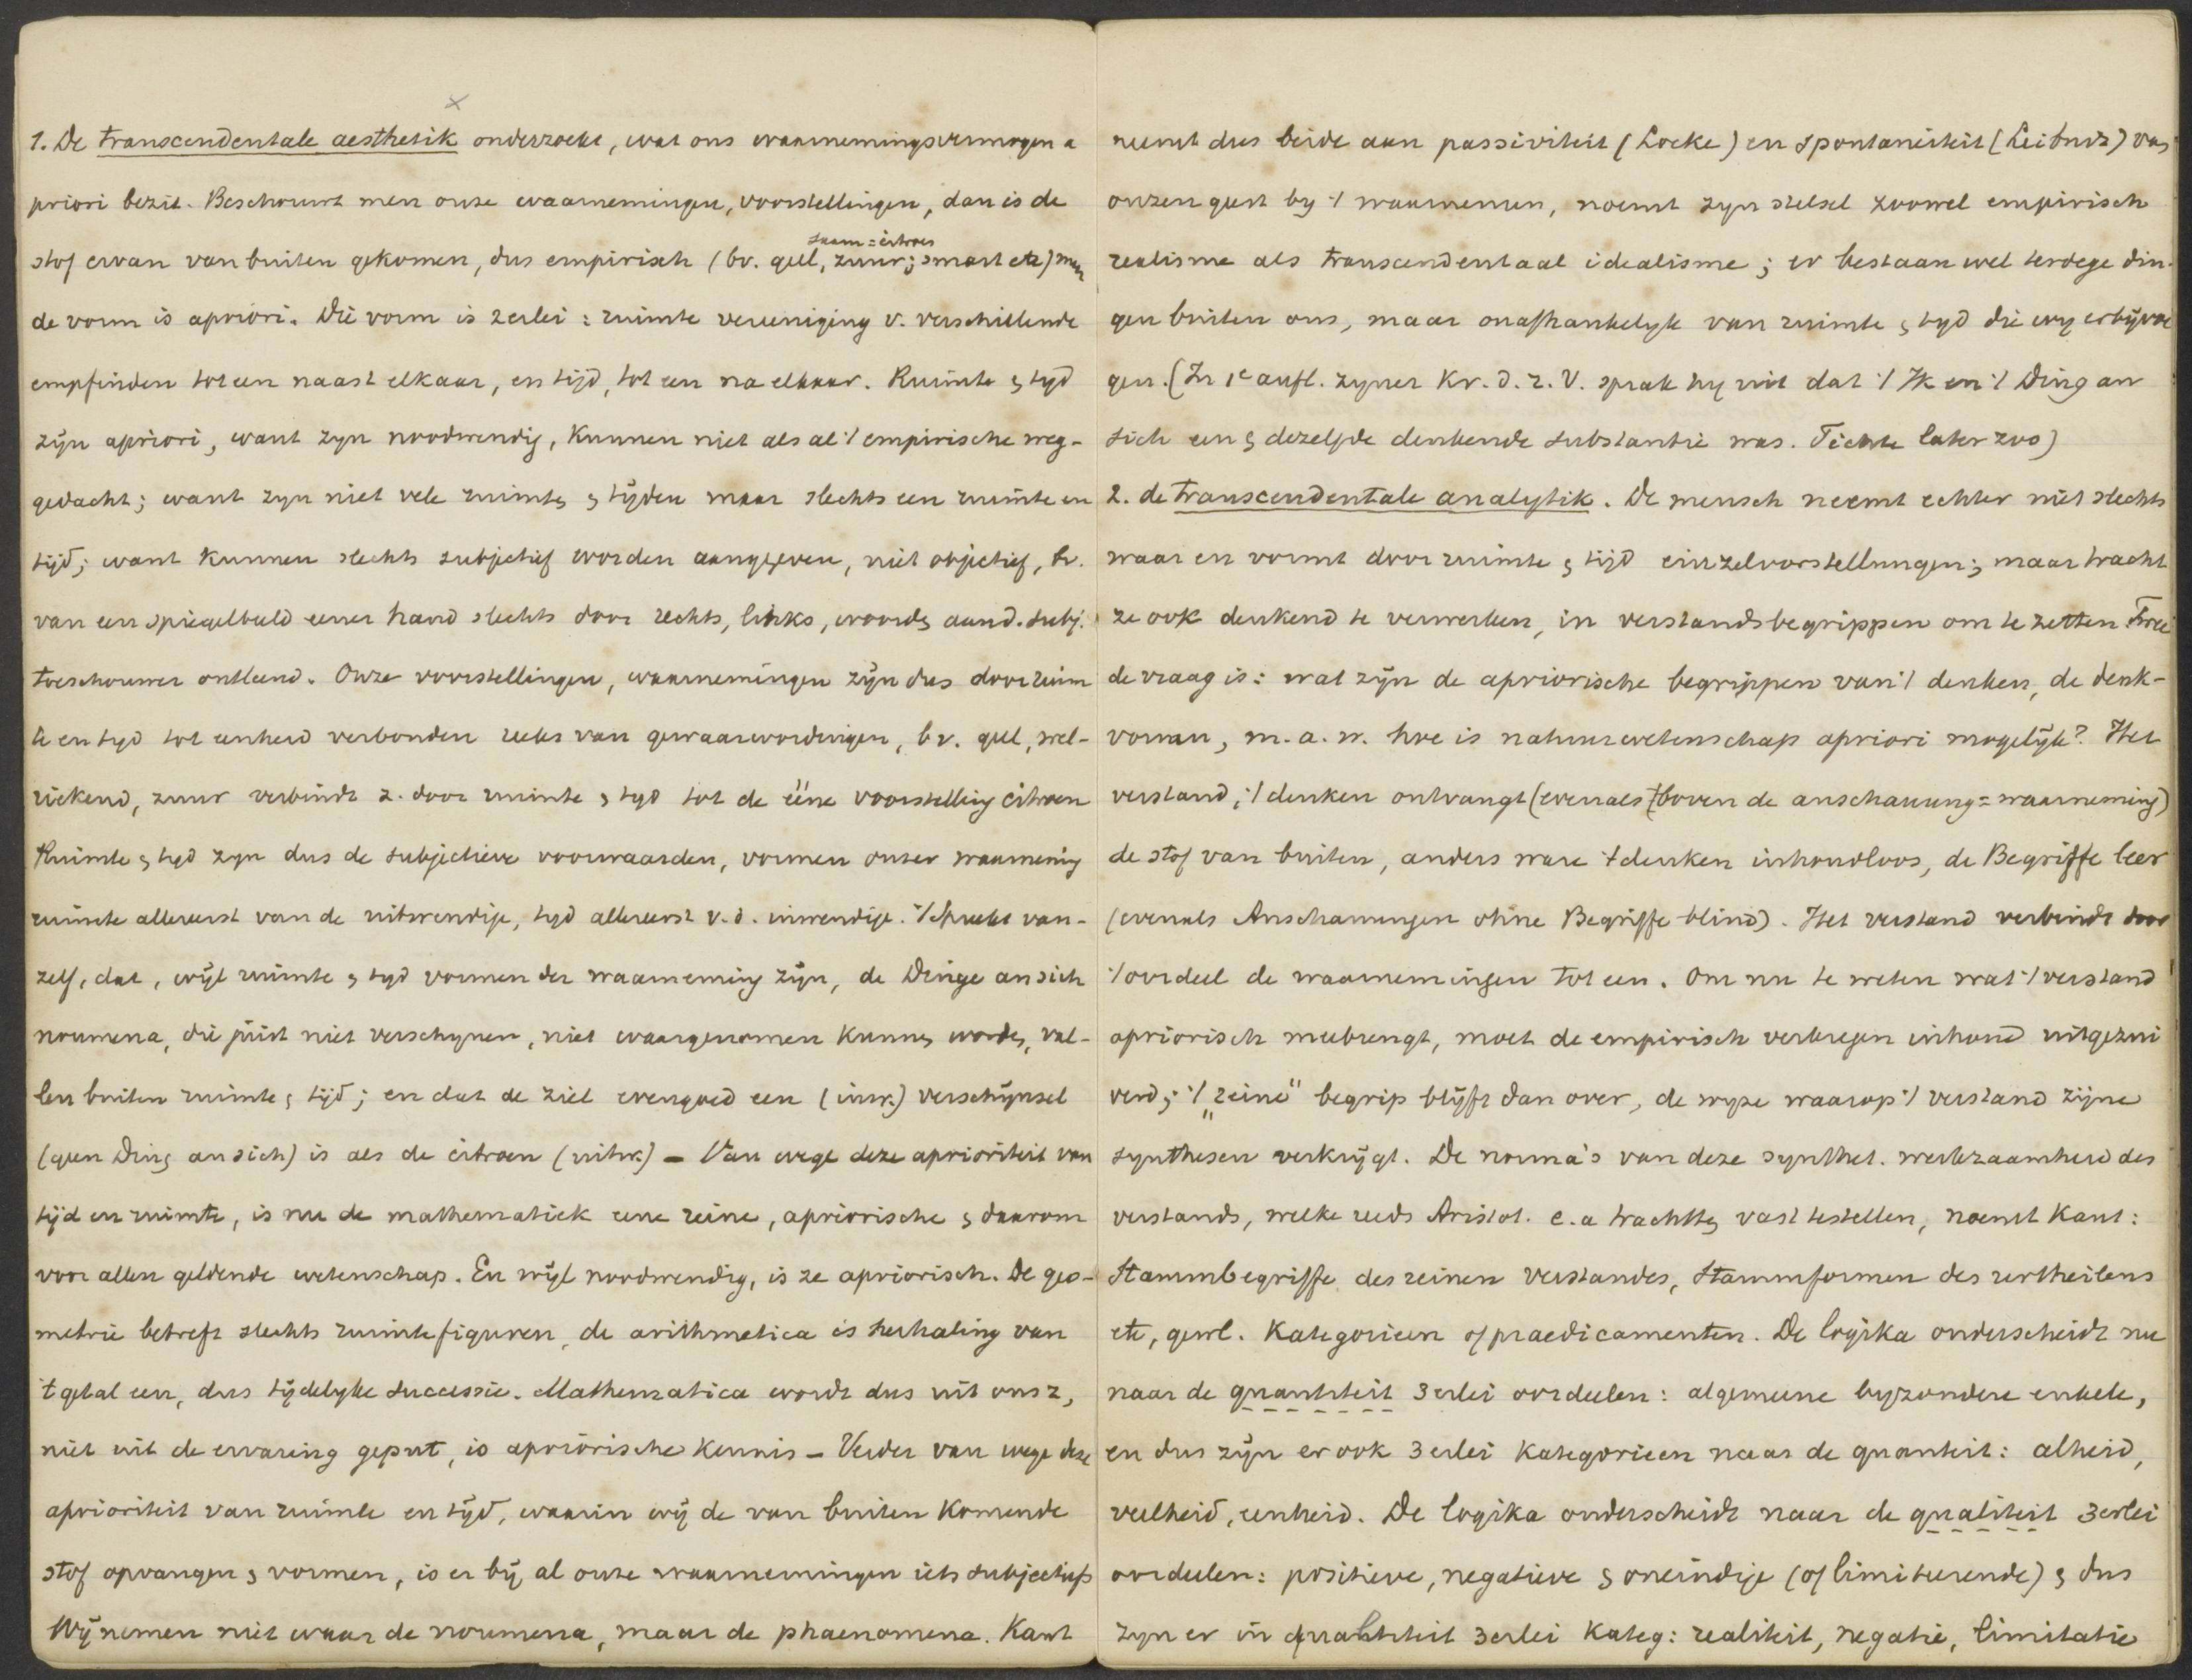 1. De transcendentale aesthetik onderzoekt, wat ons waarnemingsvermogen a
priori bezit. Beschouwt men onze waarnemingen, voorstellingen, dan is de
saam = citroen
stof ervan van buiten gekomen, dus empirisch (bv. geel, zuur; smart etc) maar
de vorm is apriori. Die vorm is 2erlei: ruimte vereeniging v. verschillende
empfinden tot een naast elkaar, en tijd, tot een na elkaar. Ruimte & tyd
zijn apriori, want zyn noodwendig, kunnen niet als al 't empirische weg-
gedacht; want zyn niet vele ruimten & tijden maar slechts een ruimte en
tijd; want kunnen slechts subjectief worden aangegeven, niet objectief, bv.
van een spiegelbeeld eener hand slechts door rechts, links, woorden aan d. subj.
toeschouwer ontleend. Onze voorstellingen, waarnemingen zijn dus door ruim
te en tyd tot eenheid verbonden reeks van gewaarwordingen, bv. geel, wel-
riekend, zuur verbindt z. door ruimte & tyd tot de ééne voorstelling citroen
Ruimte & tyd zyn dus de subjectieve voorwaarden, vormen onzer waarneming
ruimte allereerst van de uitwendige, tyd allereerst v.d. inwendige. 't Spreekt van-
zelf, dat, wijl ruimte & tyd vormen der waarneming zijn, de Dinge an sich
noumena, die juist niet verschynen, niet waargenomen kunnen worden, val-
len buiten ruimte & tijd; en dat de ziel evengoed een (inw.) verschijnsel
(geen Ding an sich) is als de citroen (uitw.) – Van wege deze aprioriteit van
tijd en ruimte, is nu de mathematiek eene reine, apriorische & daarom
voor allen geldende wetenschap. En wijl noodwendig, is ze apriorisch. De geo-
metrie betreft slechts ruimtefiguren, de arithmetica is herhaling van
't getal een, dus tijdelyke successie. Mathematica wordt dus uit ons z,
niet uit de ervaring geput, is apriorische kennis – Verder van wege deze
aprioriteit van ruimte en tijd, waarin wij de van buiten komende
stof opvangen & vormen, is er bij al onze waarnemingen iets subjectiefs
Wij nemen niet waar de noumena, maar de phaenomena. Kant
neemt dus beide aan passiviteit (Locke) en spontaneiteit (Leibnitz) van
onzen geest by 't waarnemen, noemt zyn stelsel zoowel empirisch
realisme als transcendentaal idealisme; er bestaan wel terdege din-
gen buiten ons, maar onafhankelyk van ruimte & tyd die wy erbij voe
gen. (In 1e aufl. zyner Kr. d. r. V. sprak hy uit dat 't Ik en 't Ding an
sich een & dezelfde denkende substantie was. Fichte later zoo)
2. de transcendentale analytik. De mensch neemt echter niet slechts
waar en vormt door ruimte & tijd einzelvorstellungen; maar tracht
ze ook denkend te verwerken, in verstandsbegrippen om te zetten. Twee
de vraag is: wat zijn de apriorische begrippen van 't denken, de denk-
vormen, m.a.w. hoe is natuurwetenschap apriori mogelijk? Het
verstand, 't denken ontvangt (evenals boven de anschauung = waarneming)
de stof van buiten, anders ware 't denken inhoudloos, de Begriffe leer
(evenals Anschauungen ohne Begriffe blind). Het verstand verbindt door
't oordeel de waarnemingen tot een. Om nu te weten wat 't verstand
apriorisch meebrengt, moet de empirisch verkregen inhoud uitgezui
verd; 't „reine" begrip blijft dan over, de wyze waarop 't verstand zijne
synthesen verkrijgt. De norma's van deze synthet. werkzaamheid des
verstands, welke reeds Aristot. e.a trachtten vast te stellen, noemt Kant:
Stammbegriffe des reinen Verstandes, Stammformen des urtheilens
etc, gewl. Kategorieen of praedicamenten. De logika onderscheidt nu
naar de quantiteit 3erlei oordeelen: algemeene byzondere enkele,
en dus zijn er ook 3erlei kategorieen naar de quanteit: alheid,
veelheid, eenheid. De logika onderscheidt naar de qualiteit 3erlei
oordeelen: positieve, negatieve & oneindige (of limiteerende) & dus
zyn er in qualiteit 3erlei kateg: realiteit, negatie, limitatie